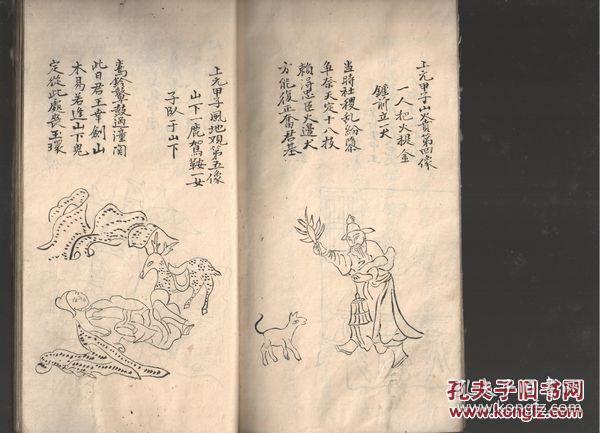 上元甲子山火賁第四像
一人把火提金
前立一犬
当時社稷乱紛
争奈天定十八枝
賴得忠臣火邊犬
方能復正舊君基
上元甲子風地观第五像
山下一鹿駕鞍一女
子臥于山下
鼙鼓過潼関
此日君王幸劍山
木易若逢山下鬼
定從此處喪玉環
孔夫子旧书网
www.kongfz.com